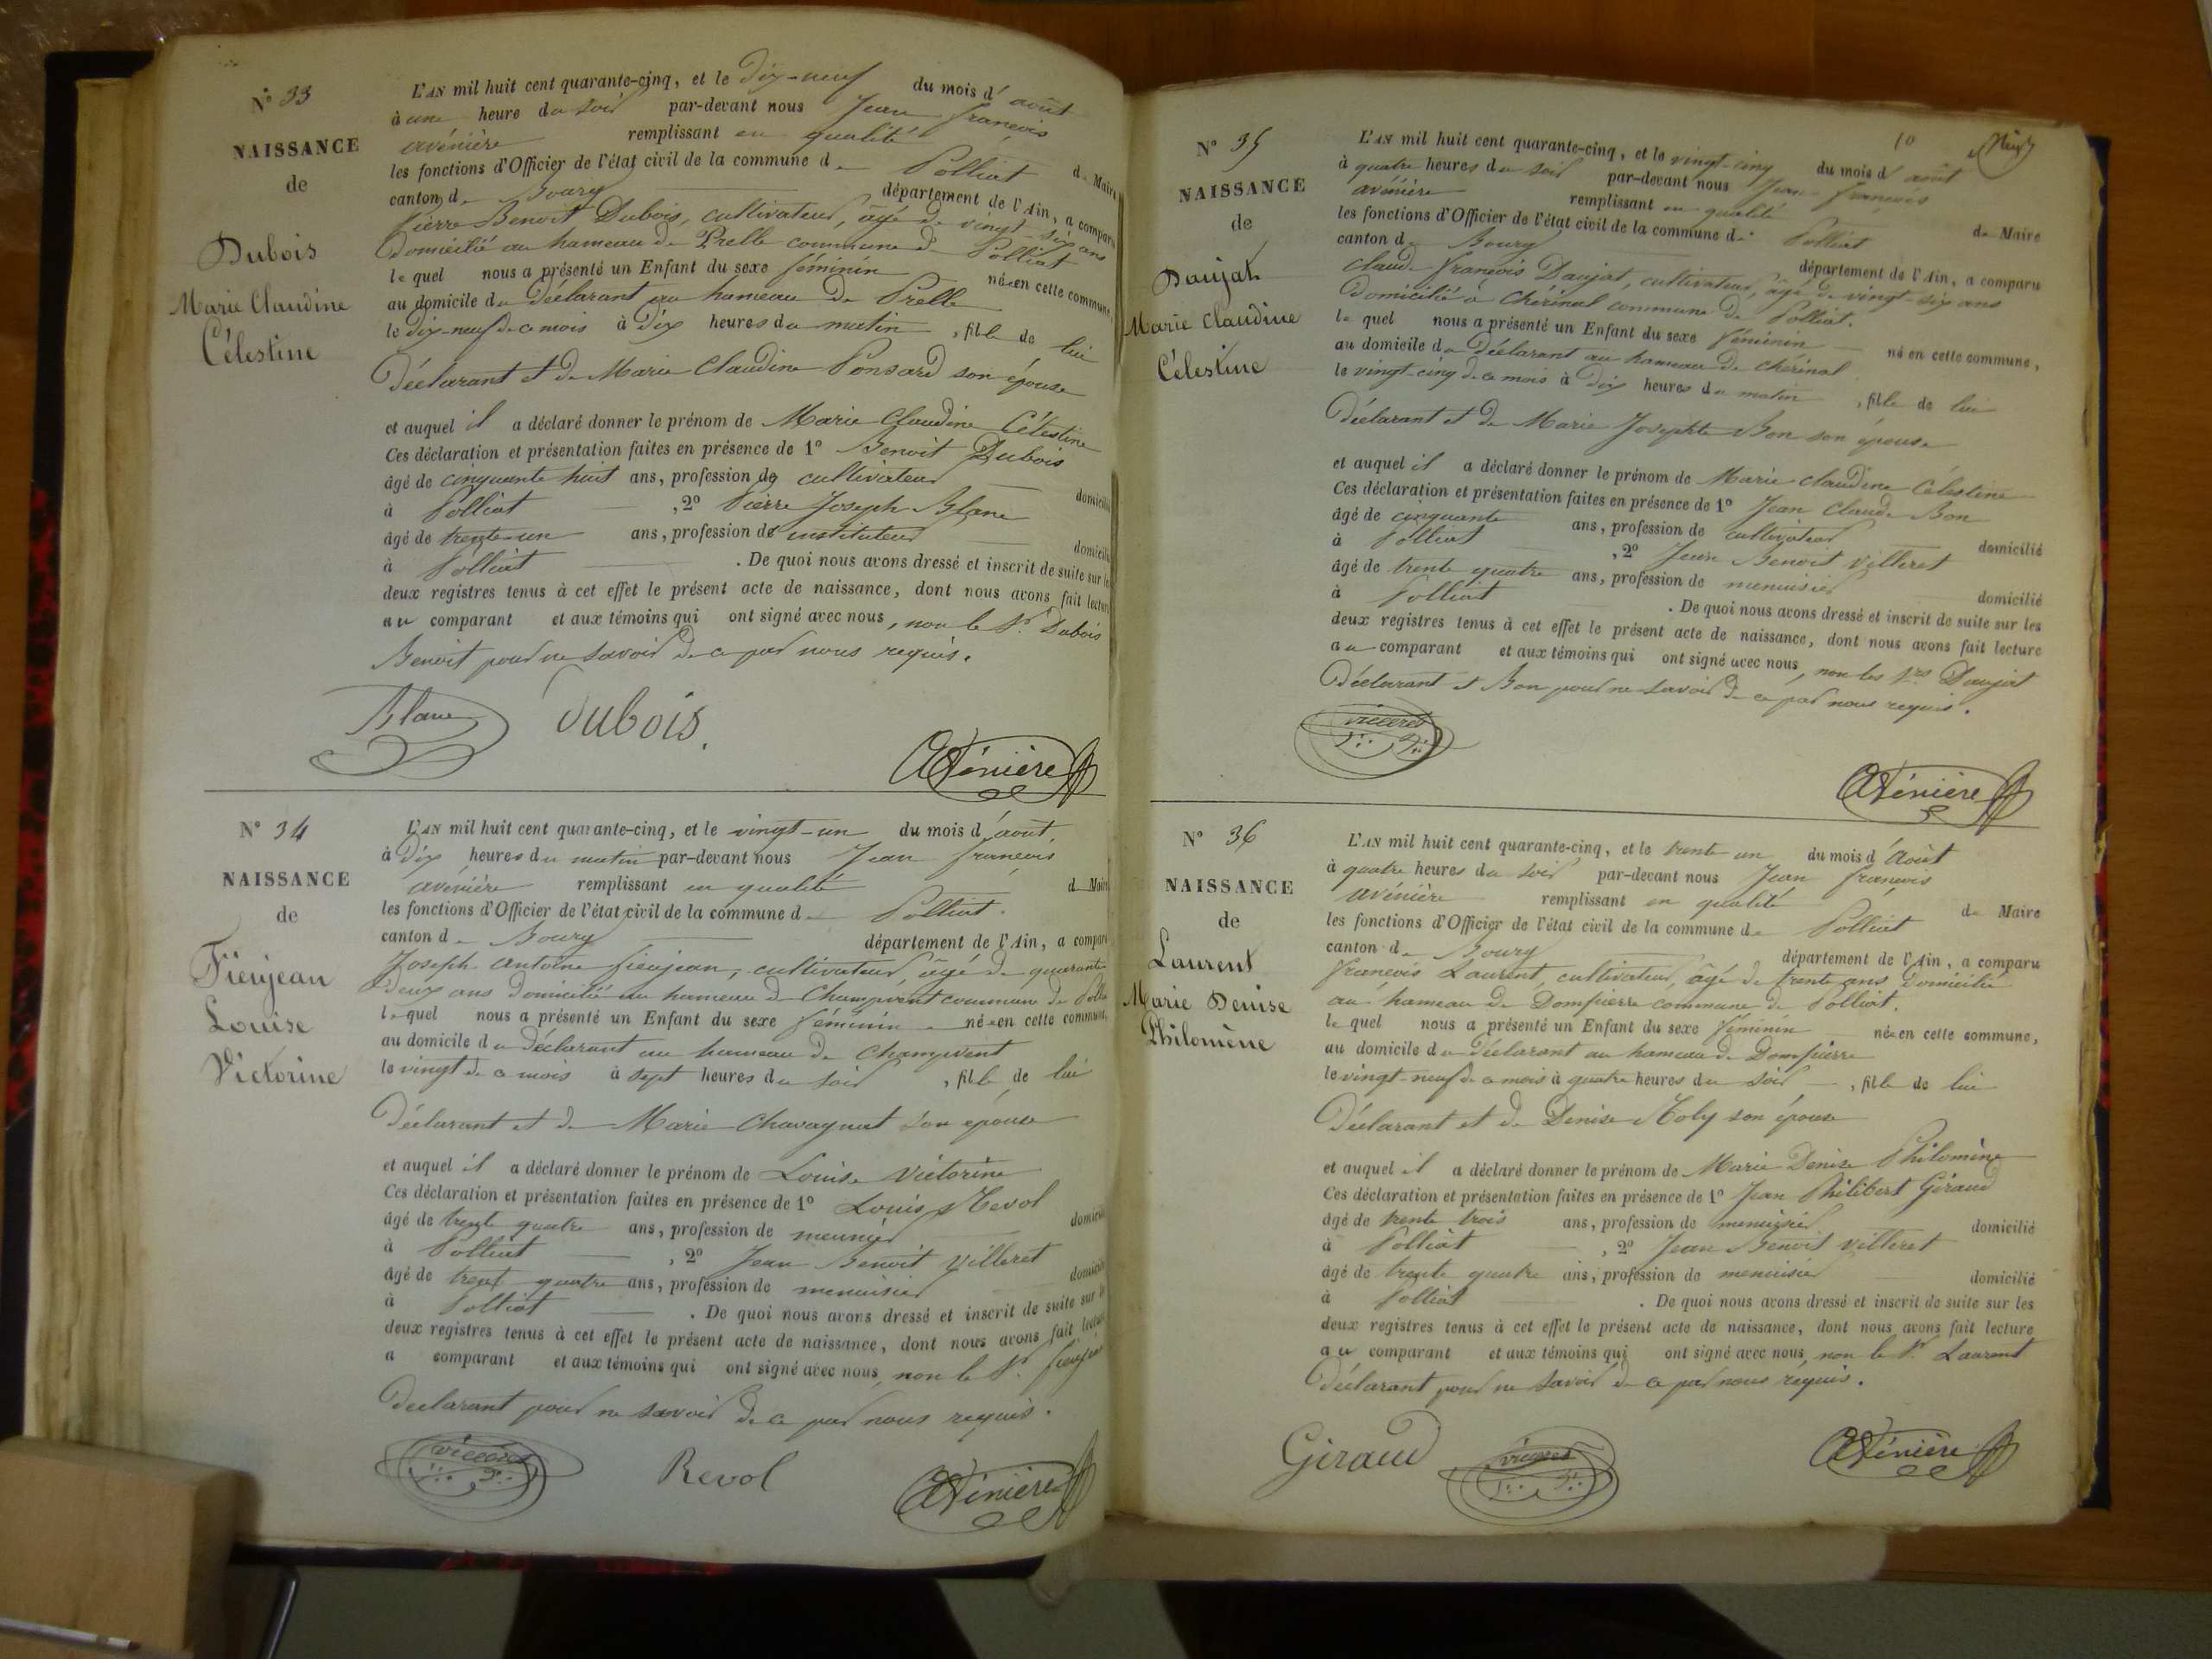 N° 33
NAISSANCE
de
Dubois
Marie Claudine
Célestine
L'AN mil huit cent quarante-cinq, et le dix-neuf du mois d'août
à une heure du soir par-devant nous Jean françois
avénière remplissant en qualité de Maire
les fonctions d'Officier de l'état civil de la commune de Polliat
canton de Bourg département de l'Ain, a comparu
Pierre Benoit Dubois, cultivateur, âgé de vingt-six ans
domicilié au hameau de Prelle commune de Polliat
le quel nous a présenté un Enfant du sexe féminin née en cette commune,
au domicile du déclarant au hameau de Prelle
le dix-neuf de ce mois à dix heures du matin, fille de lui
déclarant et de Marie Claudine Ponsard son épouse
et auquel il a déclaré donner le prénom de Marie Claudine Célestine
Ces déclaration et présentation faites en présence de 1° Benoit Dubois
âgé de cinquante huit ans, profession de cultivateur domicilié
à Polliat, 2° Pierre Joseph Blanc
âgé de trente-un ans, profession de instituteur domicilié
à Polliat. De quoi nous avons dressé et inscrit de suite sur les
deux registres tenus à cet effet le présent acte de naissance, dont nous avons fait lecture
au comparant et aux témoins qui ont signé avec nous, non le Sr. Dubois
Benoit pour ne savoir de ce par nous requis.
Blanc Dubois. Avénière
N° 34
NAISSANCE
de
Fieujean
Louise
Victorine
L'AN mil huit cent quarante-cinq, et le vingt-un du mois d'août,
à dix heures du matin par-devant nous Jean françois
avénière remplissant en qualité de Maire
les fonctions d'Officier de l'état civil de la commune de Polliat.
canton de Bourg département de l'Ain, a comparu
Joseph antoine fieujean, cultivateur, âgé de quarante
deux ans domicilié au hameau de Champvent commune de Polliat
le quel nous a présenté un Enfant du sexe féminin née en cette commune,
au domicile du déclarant au hameau de Champvent
le vingt de ce mois à sept heures du soir, fille de lui
déclarant et de Marie Chavagnat son épouse
et auquel il a déclaré donner le prénom de Louise Victorine
Ces déclaration et présentation faites en présence de 1° Louis Revol
âgé de trente quatre ans, profession de meunier domicilié
à Polliat, 2° Jean Benoit Villeret
âgé de trente quatre ans, profession de menuisier domicilié
à Polliat. De quoi nous avons dressé et inscrit de suite sur les
deux registres tenus à cet effet le présent acte de naissance, dont nous avons fait lecture
a comparant et aux témoins qui ont signé avec nous, non le Sr. fieujean
déclarant pour ne savoir de ce par nous requis.
Villeret Revol Avénière
10
N° 35
NAISSANCE
de
Daujat
Marie claudine
Célestine
L'AN mil huit cent quarante-cinq, et le vingt-cinq du mois d'août
à quatre heures du soir par-devant nous Jean-françois
avénière remplissant en qualité de Maire
les fonctions d'Officier de l'état civil de la commune de Polliat
canton de Bourg département de l'Ain, a comparu
Claude françois Daujat, cultivateur, âgé de vingt-six ans
domicilié à Chérinal commune de Polliat.
le quel nous a présenté un Enfant du sexe féminin né en cette commune,
au domicile du déclarant au hameau de Chérinal
le vingt-cinq de ce mois à dix heures du matin, fille de lui
déclarant et de Marie Josephte Bon son épouse
et auquel il a déclaré donner le prénom de Marie claudine Célestine
Ces déclaration et présentation faites en présence de 1° Jean Claude Bon
âgé de cinquante ans, profession de cultivateur domicilié
à Polliat, 2° Jean Benoit Villeret
âgé de trente quatre ans, profession de menuisier domicilié
à Polliat. De quoi nous avons dressé et inscrit de suite sur les
deux registres tenus à cet effet le présent acte de naissance, dont nous avons fait lecture
au comparant et aux témoins qui ont signé avec nous, non les Srs Daujat
déclarant et Bon pour ne savoir de ce par nous requis.
Villeret Avénière
N° 36
NAISSANCE
de
Laurent
Marie Denise
Philomène
L'AN mil huit cent quarante-cinq, et le trente un du mois d'Août
à quatre heures du soir par-devant nous Jean françois
avénière remplissant en qualité de Maire
les fonctions d'Officier de l'état civil de la commune de Polliat
canton de Bourg département de l'Ain, a comparu
françois Laurent, cultivateur, âgé de trente ans domicilié
au hameau de Dompierre commune de Polliat.
le quel nous a présenté un Enfant du sexe féminin née en cette commune,
au domicile du déclarant au hameau de Dompierre
le vingt-neuf de ce mois à quatre heures du soir, fille de lui
déclarant et de Denise Roly son épouse
et auquel il a déclaré donner le prénom de Marie Denise Philomène
Ces déclaration et présentation faites en présence de 1° Jean Philibert Giraud
âgé de trente trois ans, profession de menuisier domicilié
à Polliat, 2° Jean Benoit Villeret
âgé de trente quatre ans, profession de menuisier domicilié
à Polliat. De quoi nous avons dressé et inscrit de suite sur les
deux registres tenus à cet effet le présent acte de naissance, dont nous avons fait lecture
au comparant et aux témoins qui ont signé avec nous, non le Sr. Laurent
déclarant pour ne savoir de ce par nous requis.
Giraud Villeret Avénière